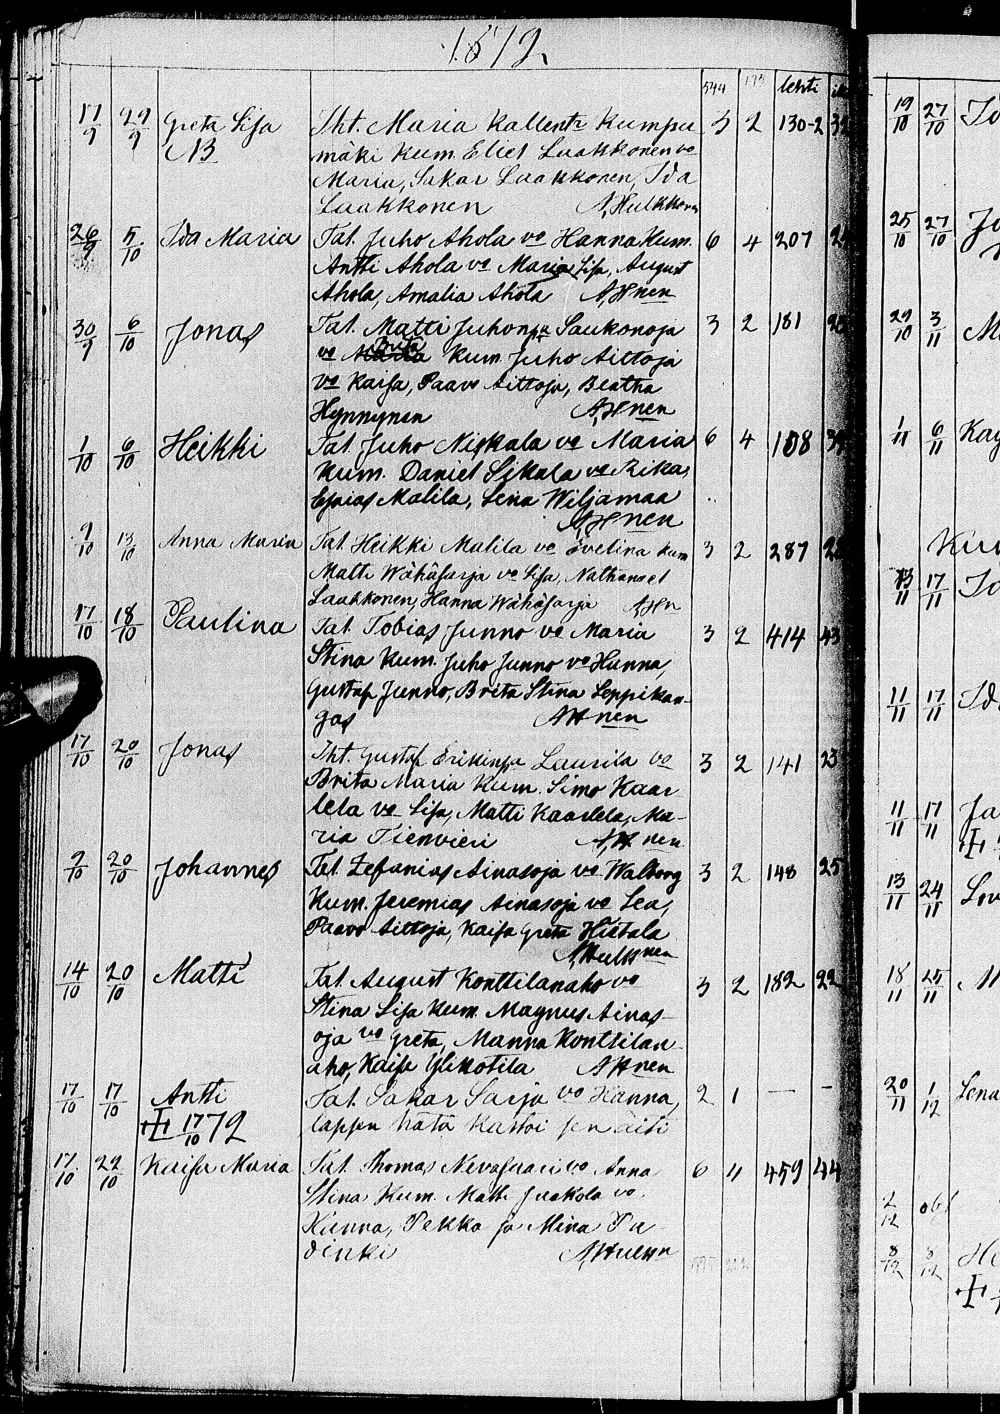 1872.
544 193 lehti
17/9 29/9 Greta Lisa Iht. Maria Kallentr Kumpu 3 2 130-2
NB mäki Kum. Eliel Laakkonen vo
Maria, Sakar Laakkonen, Ida
Laakkonen A, Hulkkonen
26/9 5/10 Ida Maria Tal. Juho Ahola vo Hanna Kum. 6 4 207
Antti Ahola vo Maria Lisa, August
Ahola, Amalia Ahola AHnen
30/9 6/10 Jonas Tal. Matti Juhonp Saukonoja 3 2 181
vo Kum. Juho Aittoja
vo Kaisa, Paavo Aittoja, Beatha
Hynnynen AHnen
1/10 6/10 Heikki Tal. Juho Niskala vo Maria 6 4 108
Kum. Daniel Sikala vo Rika,
Esaias Malila, Lena Wiljamaa
AHnen
9/10 13/10 Anna Maria Tal. Heikki Malila vo Evelina Kum 3 2 287
Matti Wähäsarja vo Lisa, Nathanael
Laakkonen, Hanna Wähäsarja AHn
17/10 18/10 Paulina Tal. Tobias Junno vo Maria 3 2 414 43
Stina Kum. Juho Junno vo Hanna,
Gustaf Junno, Brita Stina Leppikan-
gas AHnen
17/10 20/10 Jonas Iht. Gustaf Erikinp Laurila vo 3 2 141 23
Brita Maria Kum. Simo Kaar
lela vo Lisa, Matti Kaarlela, Ma-
ria Tienvieri AHnen
9/10 20/10 Johannes Tal. Zefanias Ainasoja vo Walborg 3 2 148 25
Kum. Jeremias Ainasoja vo Lea,
Paavo Aittoja, Kaisa Greta Hietala
AHulknen
14/10 20/10 Matti Tal. August Konttilanaho vo 3 2 182 22
Stina Lisa Kum. Magnus Ainas-
oja vo Greta, Manna Konttilan
aho, Kaisa Ylikotila AHnen
17/10 17/10 Antti Tal. Sakar Sarja vo Hanna, 2 1 — -
17/10 72 lapsen hätä kastoi sen äiti
17/10 22/10 Kaisa Maria Tal. Thomas Nevasaari vo Anna 6 4 459 44
Stina Kum. Matti Jaakola vo.
Hanna, Pekka ja Mina Pu-
dinki AHulkn
19/10 27/10
25/10 27/10
29/10 3/11
1/11 6/11
13/11 17/11
11/11 17/11
11/11 17/11
13/11 24/11
18/11 25/11
20/11 1/12 Lena
2/12
8/12 8/12